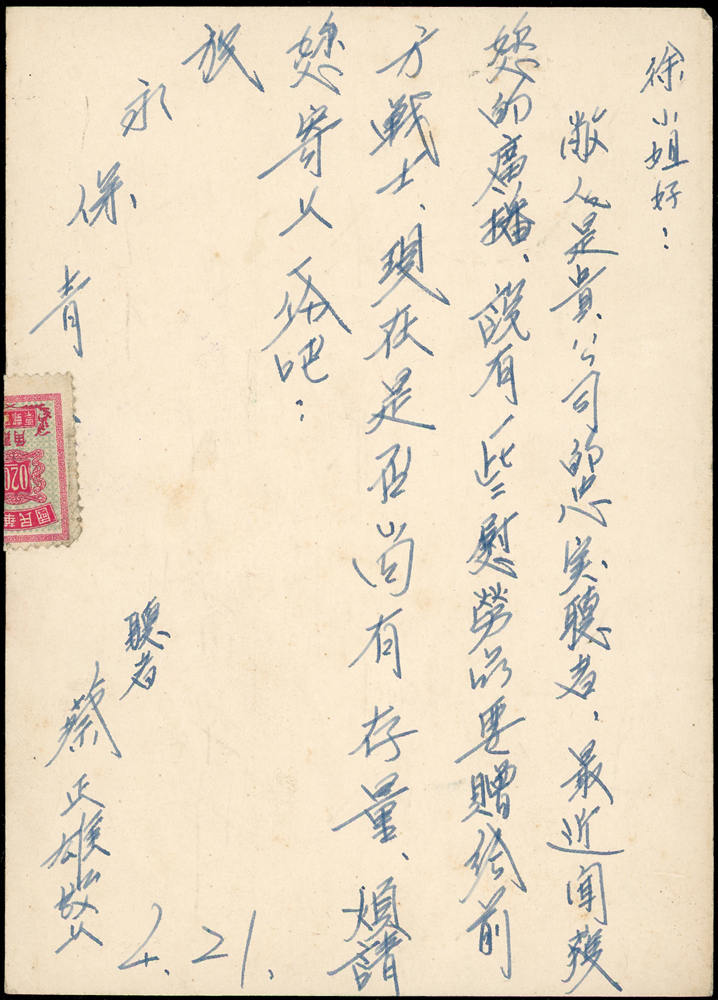 徐小姐好：
敝人是貴公司的忠实聽者、最近聞獲
您的廣播、說有一些慰勞品要贈給前
方戰士、現在是否尚有存量、煩請
您寄以一份吧：
祝
永
保
青
聽者
蔡正雄敬上
2. 21.
國民華
020
角貳